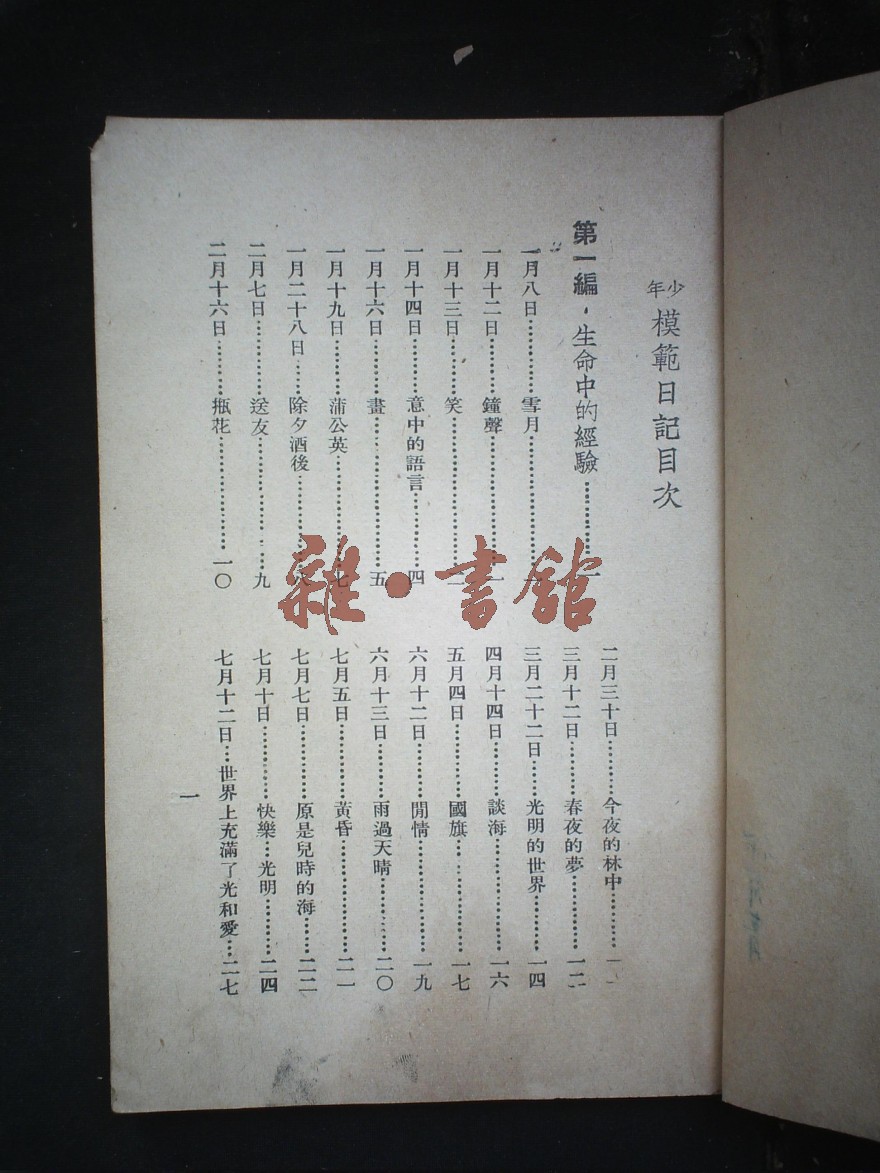 少年模範日記目次
第一編．生命中的經驗…………一
一月八日…………雪月…………一
一月十二日………鐘聲…………
一月十三日………笑…………
一月十四日………意中的語言…………四
一月十六日………畫…………五
一月十九日………蒲公英…………七
一月二十八日……除夕酒後…………
二月七日…………送友…………九
二月十六日………瓶花…………一〇
二月三十日………今夜的林中…………
三月十二日………春夜的夢…………一二
三月二十二日……光明的世界…………一四
四月十四日………談海…………一六
五月四日…………國旗…………一七
六月十二日………閒情…………一九
六月十三日………雨過天晴…………二〇
七月五日…………黃昏…………二一
七月七日…………原是兒時的海…………二二
七月十日…………快樂…光明…………二四
七月十二日…世界上充滿了光和愛…二七
一
雜·書館